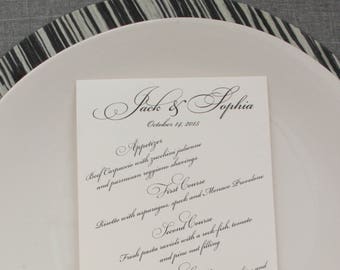 Jack & Sophia
October 14, 2015
Appetizer
Beef Carpaccio with zucchini julienne
and parmesan reggiano shavings
First Course
Risotto with asparagus, speck and Monaco Provolone
Second Course
Fresh pasta ravioli with a rock-fish, tomato
and pine nut filling